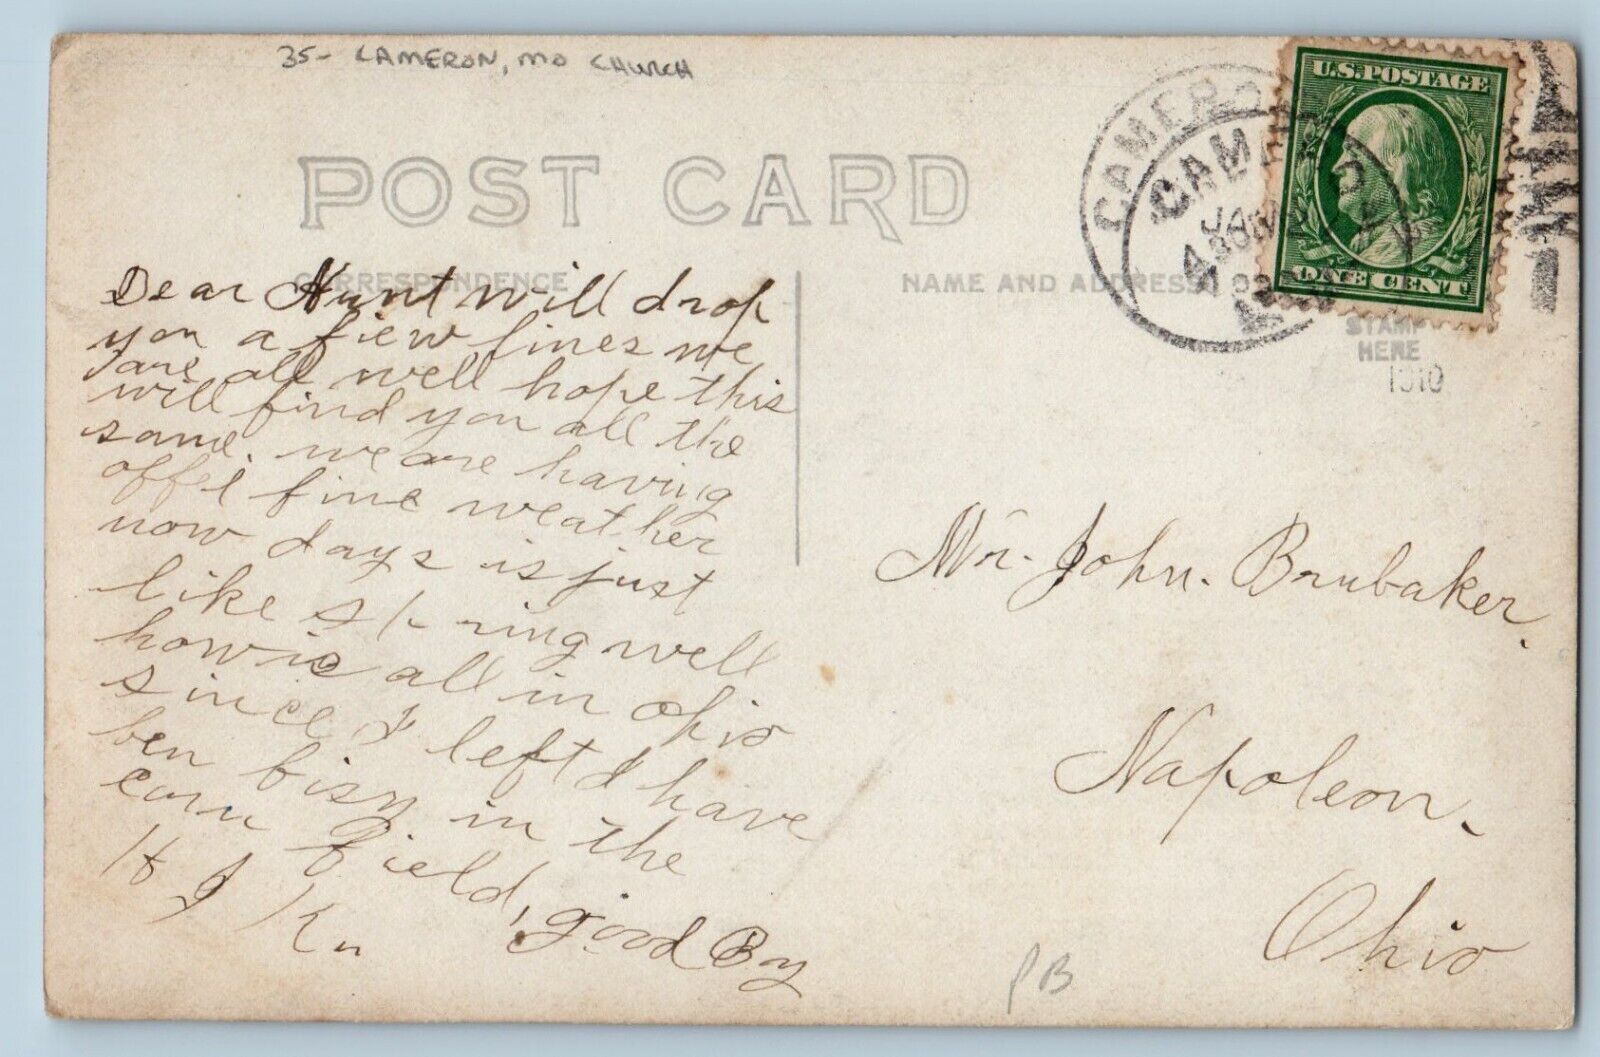 35- CAMERON, MO CHURCH
POST CARD
CORRESPONDENCE
NAME AND ADDRESS
U.S. POSTAGE
ONE CENT
CAMERON
CAMERON
JAN
STAMP
HERE
1910
Dear Hunt will drop
you a few lines we
are all well hope this
will find you all the
same. we are having
offel fine weather
now days is just
like sp-ring well
how is all in ohio
since I left I have
ben bisy in the
corn field, good By
H J Kn
Mr. John. Brubaker.
Napoleon.
Ohio
PB